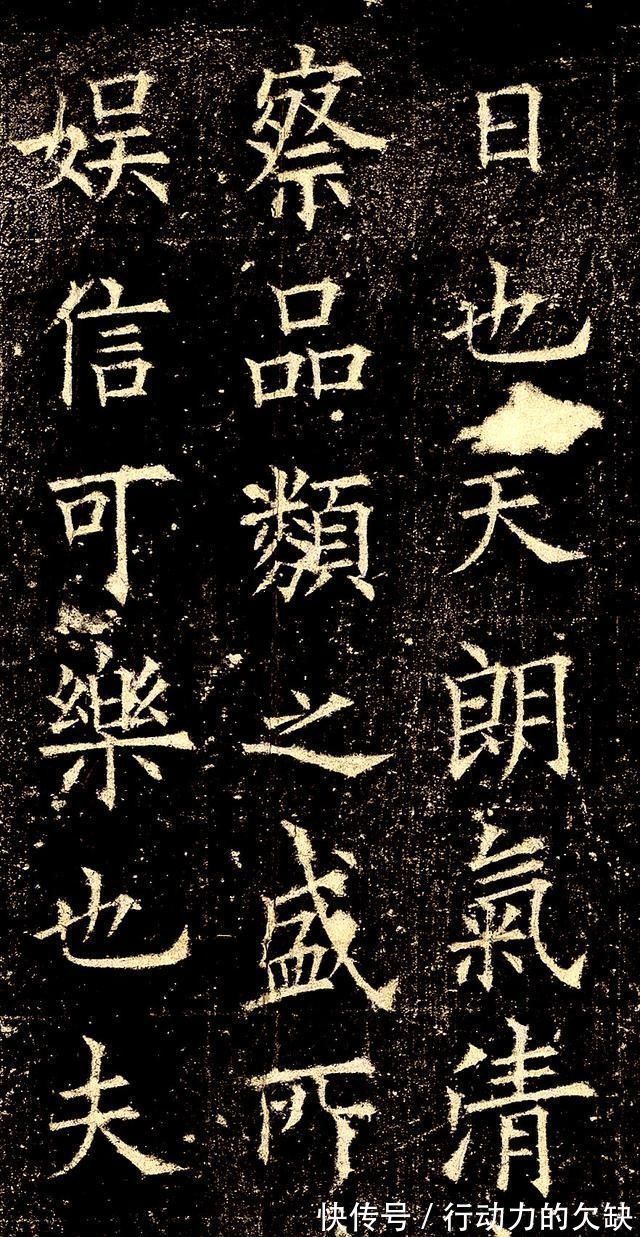 日也天朗氣清
察品類之盛所
娛信可樂也夫
快传号/行动力的欠缺